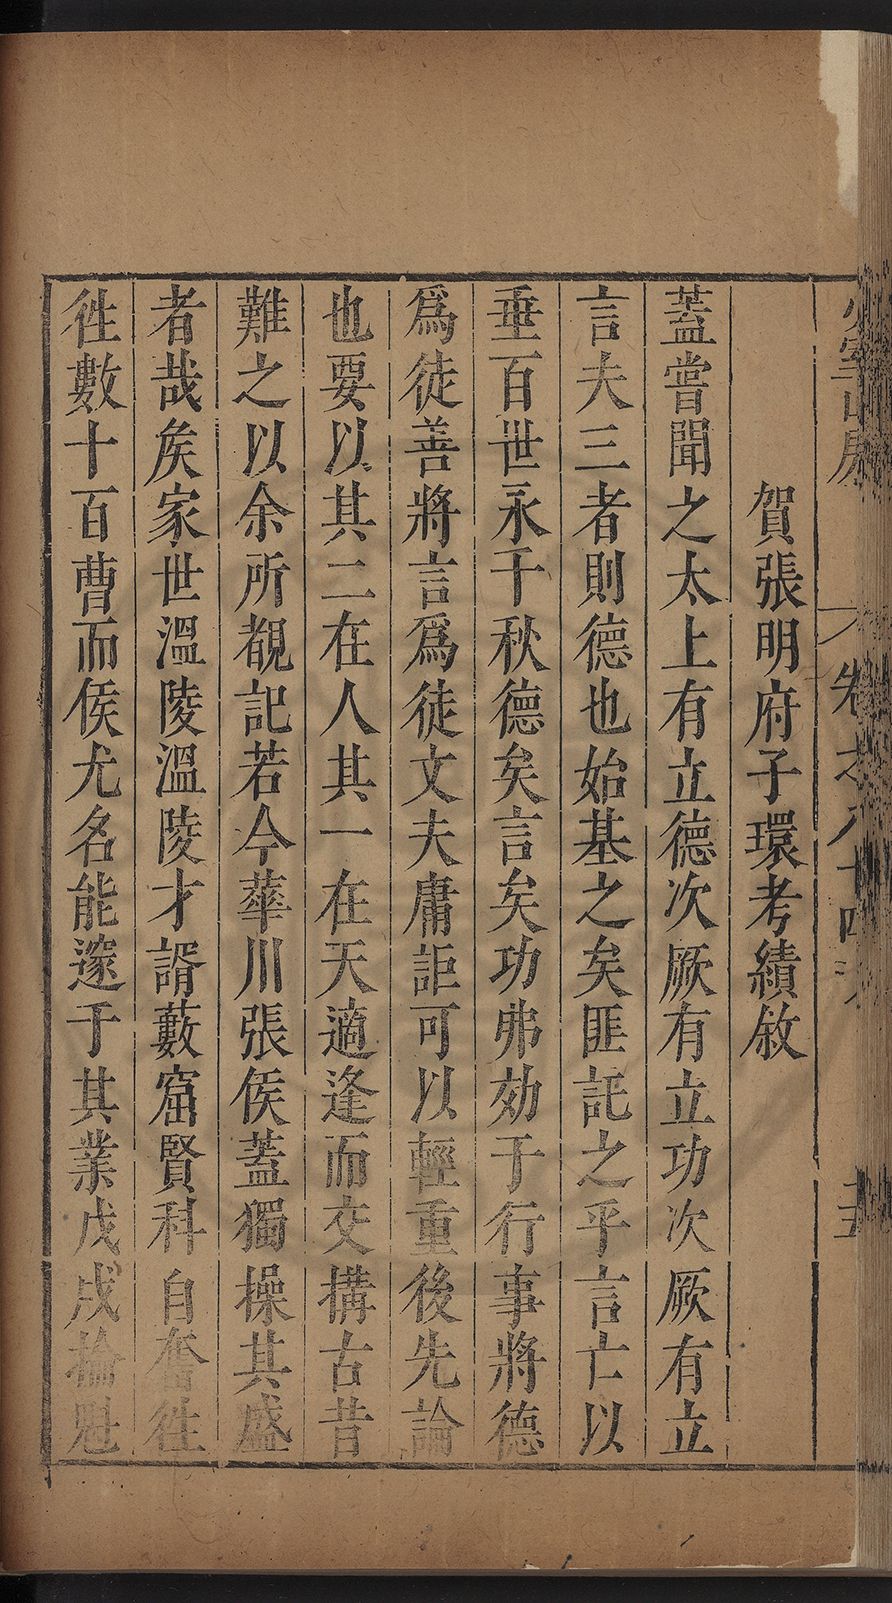 少室山房 卷之八十四 五
賀張明府子環考績敘
蓋嘗聞之太上有立德次厥有立功次厥有立
言夫三者則德也始基之矣匪託之乎言亡以
垂百世永千秋德矣言矣功弗効于行事將德
爲徒善將言爲徒文夫庸詎可以輕重後先論
也要以其二在人其一在天適逢而交搆古昔
難之以余所覩記若今華川張侯蓋獨操其盛
者哉矦家世溫陵溫陵才諝藪窟賢科自奮徃
徃數十百曹而侯尤名能邃于其業戊戌掄魁